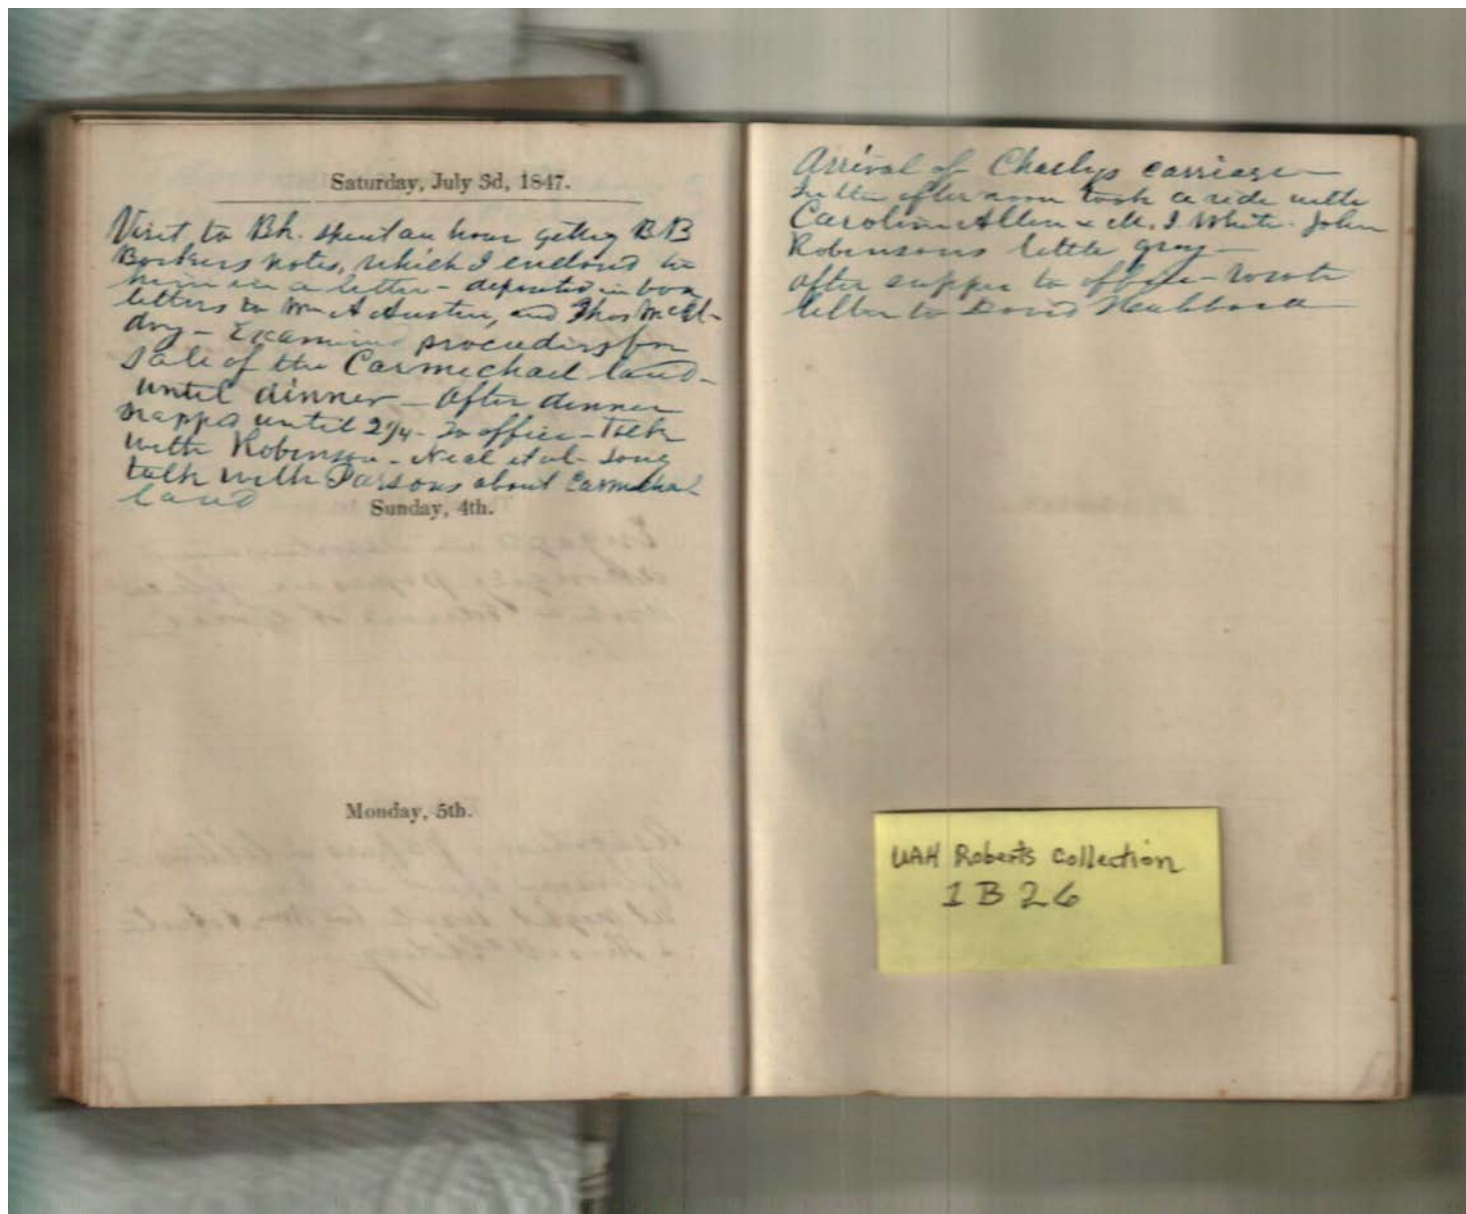 Saturday, July 3d, 1847.
Visit to Bk. spent an hour getting B B
Barkers notes, which I enclosed to
him in a letter - deposited in box
letters to Wm A Austin, and Thos McEl-
dry - Examined proceedings for
sale of the Carmichael land -
until dinner - After dinner
napped until 2 1/4 - To office - Talk
with Robinson - Neal et al - Long
talk with Parsons about Carmichael
land
Sunday, 4th.
Monday, 5th.
Arrival of Charlys carriage -
In the afternoon took a ride with
Caroline Allen & M. J. White. John
Robinsons little gray -
After supper to office - wrote
letter to David Hubbard
UAH Roberts Collection
1 B 26